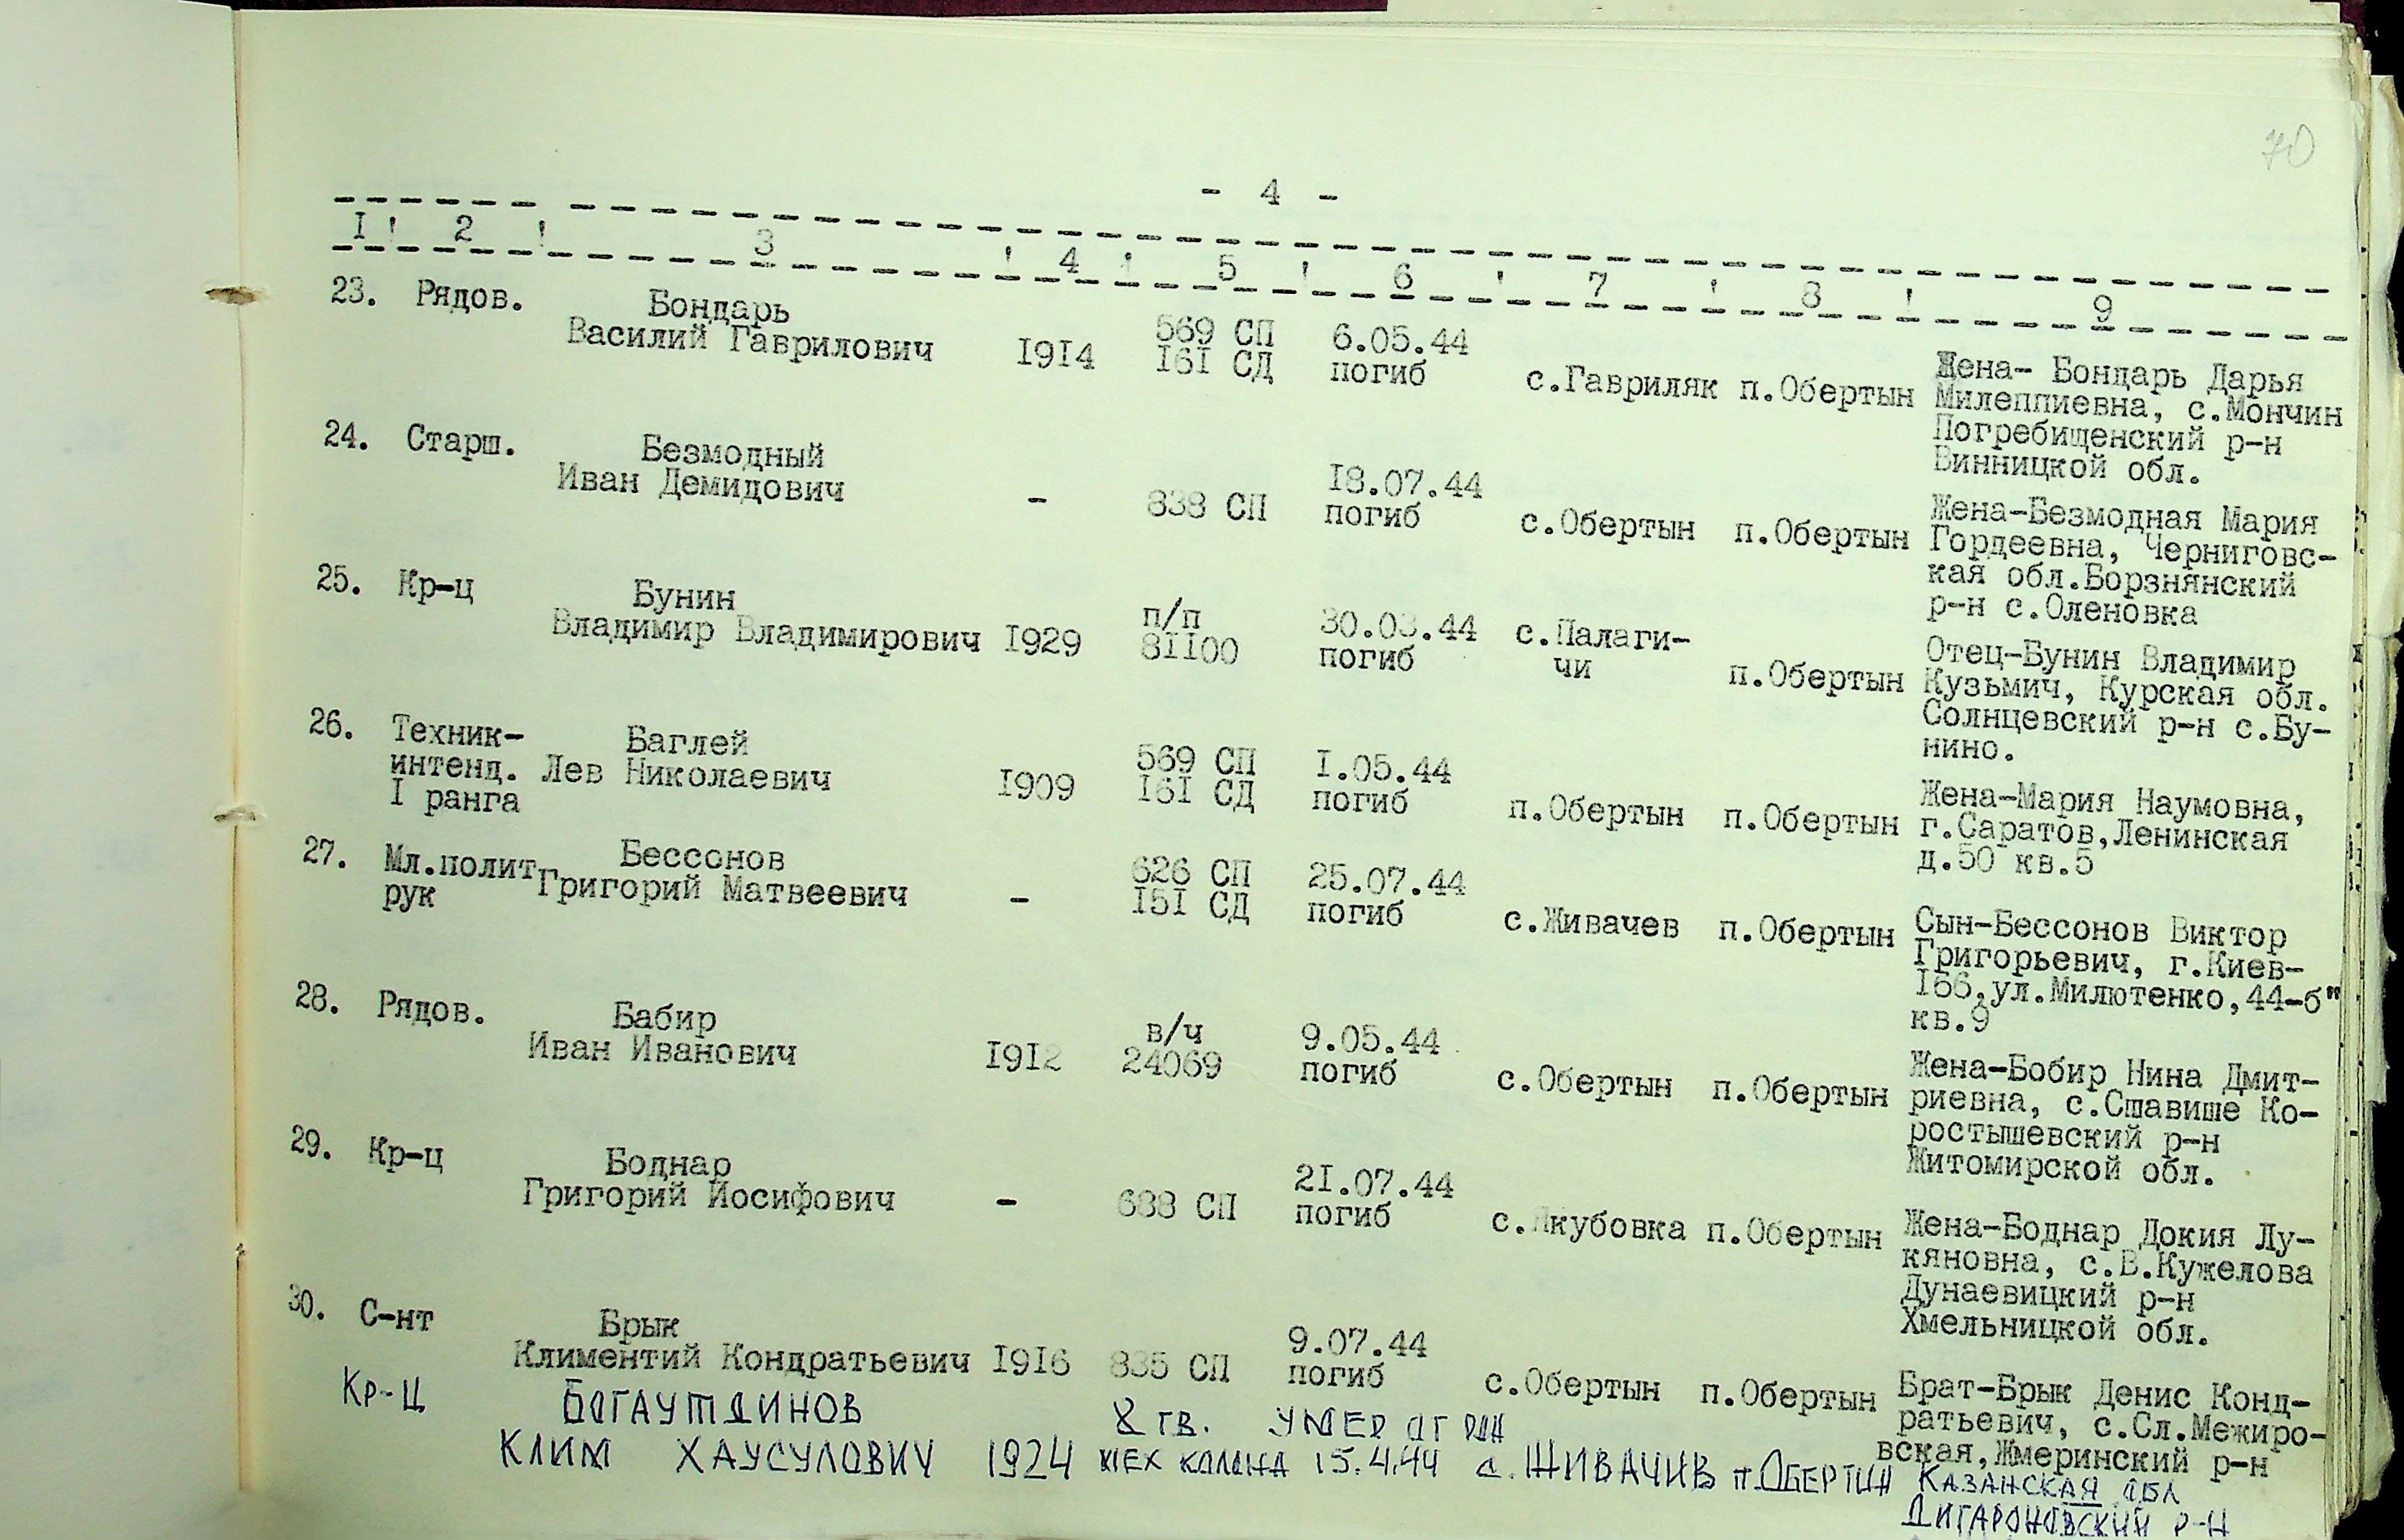 70
- 4 -
I ! 2 ! 3 ! 4 ! 5 ! 6 ! 7 ! 8 ! 9
23. Рядов. Бондарь Василий Гаврилович 1914 569 СП 161 СД 6.05.44 погиб с.Гавриляк п.Обертын Жена- Бондарь Дарья
Милеппиевна, с.Мончин
Погребищенский р-н
Винницкой обл.
24. Старш. Безмодный Иван Демидович - 838 СП 18.07.44 погиб с.Обертын п.Обертын Жена-Безмодная Мария
Гордеевна, Черниговс-
кая обл.Борзнянский
р-н с.Оленовка
25. Кр-ц Бунин Владимир Владимирович 1929 п/п 81100 30.03.44 погиб с.Палаги-
чи п.Обертын Отец-Бунин Владимир
Кузьмич, Курская обл.
Солнцевский р-н с.Бу-
нино.
26. Техник-
интенд.
I ранга Баглей Лев Николаевич 1909 569 СП 161 СД 1.05.44 погиб п.Обертын п.Обертын Жена-Мария Наумовна,
г.Саратов,Ленинская
д.50 кв.5
27. Мл.полит
рук Бессонов Григорий Матвеевич - 626 СП 151 СД 25.07.44 погиб с.Живачев п.Обертын Сын-Бессонов Виктор
Григорьевич, г.Киев-
166,ул.Милютенко,44-б"
кв.9
28. Рядов. Бабир Иван Иванович 1912 в/ч 24069 9.05.44 погиб с.Обертын п.Обертын Жена-Бобир Нина Дмит-
риевна, с.Сшавише Ко-
ростышевский р-н
Житомирской обл.
29. Кр-ц Боднар Григорий Иосифович - 688 СП 21.07.44 погиб с.Якубовка п.Обертын Жена-Боднар Докия Лу-
кяновна, с.В.Кужелова
Дунаевицкий р-н
Хмельницкой обл.
30. С-нт Брык Климентий Кондратьевич 1916 835 СП 9.07.44 погиб с.Обертын п.Обертын Брат-Брык Денис Конд-
ратьевич, с.Сл.Межиро-
вская,Жмеринский р-н
Кр-ц БОГАУТДИНОВ 8 ГВ. УМЕР ОТ РАН
КЛИМ ХАУСУЛОВИЧ 1924 МЕХ КОЛОНА 15.4.44 с. ЖИВАЧИВ п.ОБЕРТИН КАЗАНСКАЯ ОБЛ
ДИГАРОНОВСКИЙ Р-Н